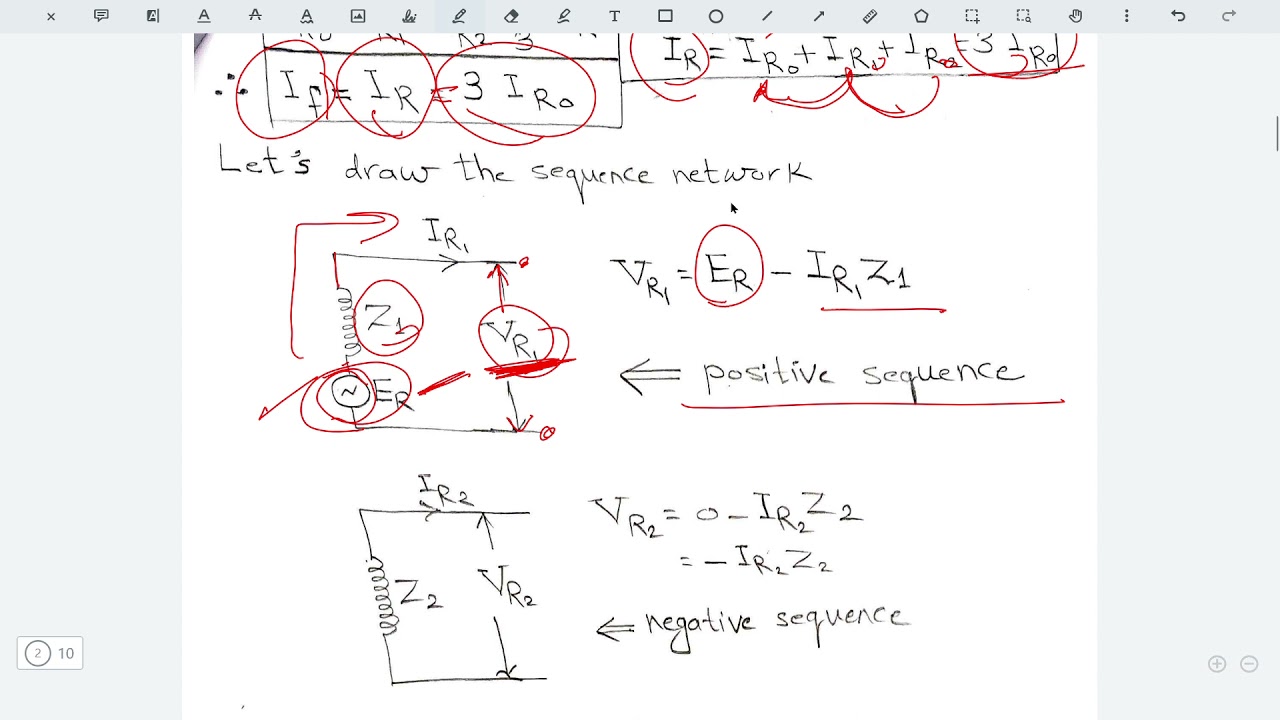 I_R = I_R0 + I_R0 + I_R0 = 3 I_R0
∴ I_f = I_R = 3 I_R0
Let's draw the sequence network
I_R1
Z1
V_R1
E_R
V_R1 = E_R - I_R1 Z1
⇐ positive sequence
I_R2
Z2
V_R2
V_R2 = 0 - I_R2 Z2
= - I_R2 Z2
⇐ negative sequence
2 10